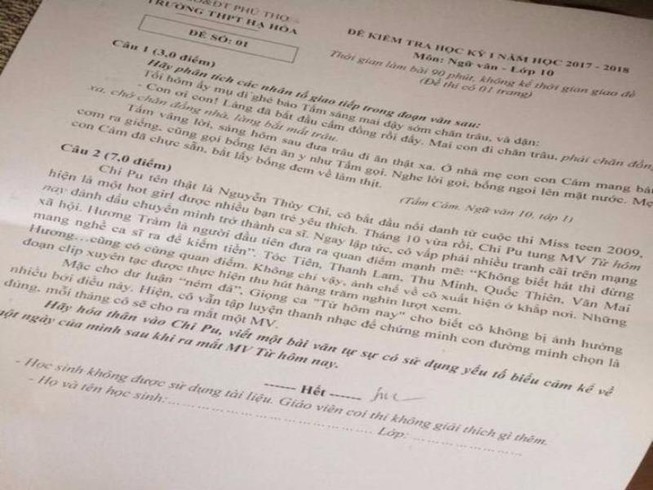 SỞ GD&ĐT PHÚ THỌ
TRƯỜNG THPT HẠ HÒA
ĐỀ SỐ: 01
ĐỀ KIỂM TRA HỌC KỲ I NĂM HỌC 2017 - 2018
Môn: Ngữ văn - Lớp 10
Thời gian làm bài 90 phút, không kể thời gian giao đề
(Đề thi có 01 trang)
Câu 1 (3,0 điểm)
Hãy phân tích các nhân tố giao tiếp trong đoạn văn sau:
Tối hôm ấy mụ dì ghẻ bảo Tấm sáng mai dậy sớm chăn trâu, và dặn:
- Con ơi con! Làng đã bắt đầu cấm đồng rồi đấy. Mai con đi chăn trâu, phải chăn đồng
xa, chớ chăn đồng nhà, làng bắt mất trâu.
Tấm vâng lời, sáng hôm sau đưa trâu đi ăn thật xa. Ở nhà mẹ con con Cám mang bát
cơm ra giếng, cũng gọi bống lên ăn y như Tấm gọi. Nghe lời gọi, bống ngoi lên mặt nước. Mẹ
con Cám đã chực sẵn, bắt lấy bống đem về làm thịt.
(Tấm Cám, Ngữ văn 10, tập 1)
Câu 2 (7,0 điểm)
Chi Pu tên thật là Nguyễn Thùy Chi, cô bắt đầu nổi danh từ cuộc thi Miss teen 2009,
hiện là một hot girl được nhiều bạn trẻ yêu thích. Tháng 10 vừa rồi, Chi Pu tung MV Từ hôm
nay đánh dấu chuyển mình trở thành ca sĩ. Ngay lập tức, cô vấp phải nhiều tranh cãi trên mạng
xã hội. Hương Tràm là người đầu tiên đưa ra quan điểm mạnh mẽ: "Không biết hát thì đừng
mang nghề ca sĩ ra để kiếm tiền". Tóc Tiên, Thanh Lam, Thu Minh, Quốc Thiên, Văn Mai
Hương...cũng có cùng quan điểm. Không chỉ vậy, ảnh chế về cô xuất hiện ở khắp nơi. Những
đoạn clip xuyên tạc được thực hiện thu hút hàng trăm nghìn lượt xem.
Mặc cho dư luận "ném đá". Giọng ca "Từ hôm nay" cho biết cô không bị ảnh hưởng
nhiều bởi điều này. Hiện, cô vẫn tập luyện thanh nhạc để chứng minh con đường mình chọn là
đúng, mỗi tháng cô sẽ cho ra mắt một MV.
Hãy hóa thân vào Chi Pu, viết một bài văn tự sự có sử dụng yếu tố biểu cảm kể về
một ngày của mình sau khi ra mắt MV Từ hôm nay.
------ Hết ------
- Học sinh không được sử dụng tài liệu. Giáo viên coi thi không giải thích gì thêm.
- Họ và tên học sinh:.................................................... Lớp: ......................